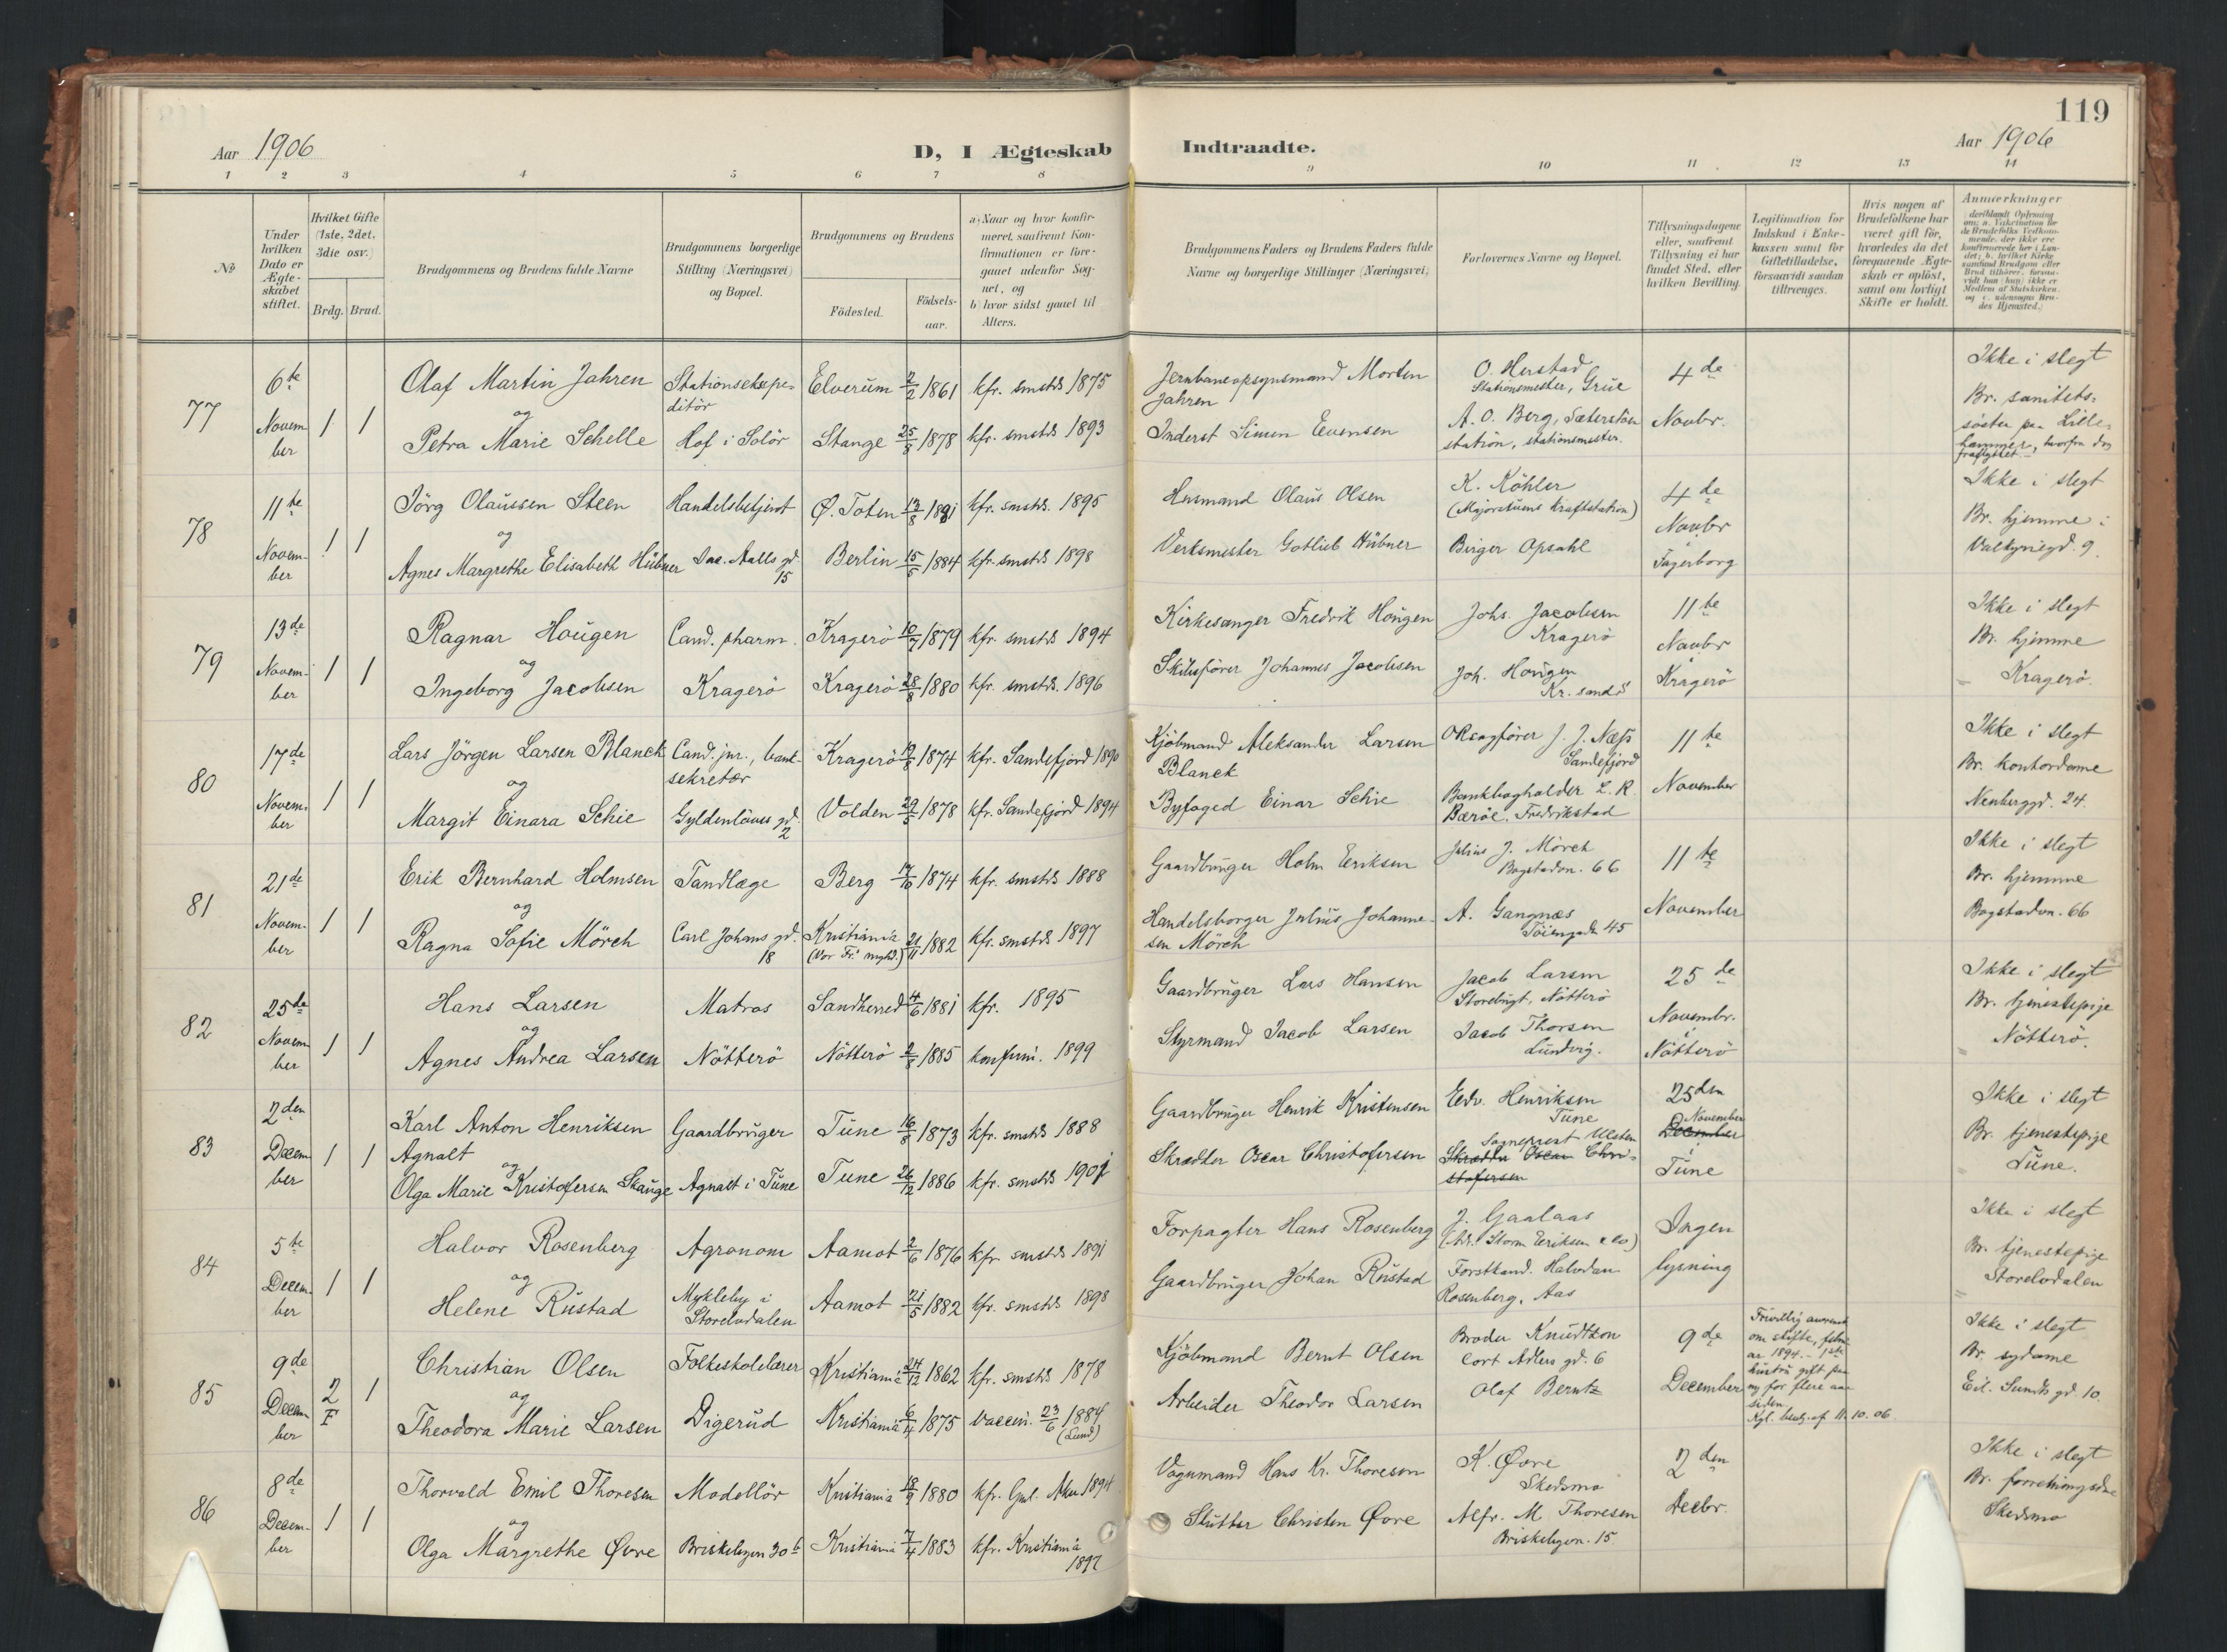 119
Aar 1906
D, I Ægteskab Indtraadte.
Aar 1906
1 2 3 4 5 6 7 8 9 10 11 12 13 14
No
Under hvilken Dato er Ægteskabet stiftet.
Hvilket Gifte (1ste, 2det, 3die osv.)
Brdg. Brud.
Brudgommens og Brudens fulde Navne
Brudgommens borgerlige Stilling (Næringsvei) og Bopæl.
Brudgommens og Brudens
Födested.
Födselsaar.
a) Naar og hvor konfirmeret, saafremt Konfirmationen er foregaaet udenfor Sognet, og
b) hvor sidst gaaet til Alters.
Brudgommens Faders og Brudens Faders fulde Navne og borgerlige Stillinger (Næringsvei)
Forlovernes Navne og Bopæl.
Tillysningsdagene eller, saafremt Tillysning ei har fundet Sted, efter hvilken Bevilling.
Legitimation for Indskud i Enkekassen samt for Giftetilladelse, forsaavidt saadan tiltrænges.
Hvis nogen af Brudefolkene har været gift för, hvorledes da det foregaaende Ægteskab er oplöst, samt om lovligt Skifte er holdt.
Anmærkninger
77
6te November
1 1
Olaf Martin Jahren
og
Petra Marie Schelle
Stationsekspeditör
Hof i Solör
Elverum 2/2 1861 kfr. smstds 1875
Stange 25/8 1878 kfr. smstds 1893
Jernbaneopsynsmand Morten Jahren
Inderst Simen Evensen
O. Herstad
Stationsmester, Grue
A. O. Berg, Sæterstöen
station, stationsmester.
4de
Novbr.
Ikke i slegt
Br. sanitets-
söster paa Lille-
hammer, hvorfra
78
11te November
1 1
Jörg Olaussen Steen
og
Agnes Margrethe Elisabeth Hübner
Handelsbetjent
Jac. Aalls gd.
15
Ø. Toten 13/8 1881 kfr. smstds. 1895
Berlin 15/5 1884 kfr. smstds 1898
Husmand Olaus Olsen
Verksmester Gotlieb Hübner
K. Köhler
(Majorstuens Kraftstation)
Birger Opsahl
4de
Novbr
i
Fagerborg
Ikke i slegt
Br. hjemme i
Valkyriegd. 9.
79
13de November
1 1
Ragnar Hougen
og
Ingeborg Jacobsen
Cand. pharm.
Kragerö
Kragerö 10/7 1879 kfr. smstds 1894
Kragerö 28/8 1880 kfr. smstds. 1896
Kirkesanger Fredrik Hougen
Skibsförer Johannes Jacobsen
Johs. Jacobsen
Kragerö
Joh. Hougen
Kr. sand S
11te
Novbr
i
Kragerö
Ikke i slegt
Br. hjemme
Kragerö.
80
17de November
1 1
Lars Jörgen Larsen Blanck
og
Margit Einara Schie
Cand. jur., bank-
sekretær
Gyldenlöves gd.
2
Kragerö 1874 kfr. Sandefjord 1890
Volden 29/5 1878 kfr. Sandefjord 1894
Kjöbmand Aleksander Larsen
Blanck
Byfoged Einar Schie
OR sagförer J. J. Næss
Sandefjord
Bankbogholder L. R.
Bæröe. Fredrikstad
11te
November
Ikke i slegt
Br. kontordame
Neuberggd. 24.
81
21de November
1 1
Erik Bernhard Holmsen
og
Ragna Sofie Mörch
Tandlæge
Carl Johans gd.
18
Berg 17/10 1874 kfr. smstds 1888
Kristiania 21/11 1882 kfr. smstds 1897
(Vor Fr. mghd.)
Gaardbruger Holm Eriksen
Handelsborger Julius Johanne-
sen Mörch
Julius J. Mörch
Bogstadvn. 66
A. Gangnæs
Töiengaden 45
11te
November
Ikke i slegt
Br. hjemme
Bogstadvn. 66
82
25de November
1 1
Hans Larsen
og
Agnes Andrea Larsen
Matros
Nötterö
Sandherred 4/6 1881 kfr. 1895
Nötterö 2/8 1885 konfirm. 1899
Gaardbruger Lars Hansen
Styrmand Jacob Larsen
Jacob Larsen
Storebugt, Nötterö
Jacob Thorsen
Lundvig.
25de
Novembr.
i
Nötterö
Ikke i slegt
Br. tjenestepige
Nötterö.
83
2den December
1 1
Karl Anton Henriksen
Agnalt
og
Olga Marie Kristofersen Skauge
Gaardbruger
Agnalt i Tune
Tune 16/8 1873 kfr. smstds 1888
Tune 26/12 1886 kfr. smstds 1901
Gaardbruger Henrik Kristensen
Skrædder Oscar Christofersen
Edv. Henriksen
Tune
Sogneprest Ulsten
Skrædder Oscar Chri-
stofersen
25den
November
December
i
Tune
Ikke i slegt
Br. tjenestepige
Tune.
84
5te December
1 1
Halvor Rosenberg
og
Helene Rustad
Agronom
Mykleby i
Storelvdalen
Aamot 2/6 1876 kfr smstds 1891
Aamot 21/5 1882 kfr. smstds 1898
Forpagter Hans Rosenberg
Gaardbruger Johan Rustad
J. Gaalaas
(Adr. Storm Eriksen & Co)
Forstkand. Halvdan
Rosenberg, Aas
Ingen
lysning
Ikke i slegt
Br. tjenestepige
Storelvdalen
85
9de December
2 1
F
Christian Olsen
og
Theodora Marie Larsen
Folkeskolelærer
Digerud
Kristiania 24/12 1862 kfr. smstds 1878
Kristiania 6/4 1875 vaccin. 23/6 1884
(Lund)
Kjöbmand Bernt Olsen
Arbeider Theodor Larsen
Broder Knudtzon
Cort Adlers gd. 6
Olaf Berntz
9de
December
om skifte, febru-
ar 1894. 1ste
hustru gift paa
ny for flere aar
siden.
Kgl. bevilg. af 11.10.06.
Ikke i slegt
Br. sydame
Eil. Sundts gd. 10.
86
8de December
1 1
Thorvald Emil Thoresen
og
Olga Margrethe Øvre
Modellör
Briskebyvn 30 b
Kristiania 18/9 1880 kfr. Gml. Aker 1894
Kristiania 7/4 1883 kfr. Kristiania
1897
Vognmand Hans Kr. Thoresen
Slutter Christen Øvre
K. Øvre
Skedsmo
Alfr. M. Thoresen
Briskebyvn. 15
2den
Decbr.
Ikke i slegt
Br. forretningsdme
Skedsmo